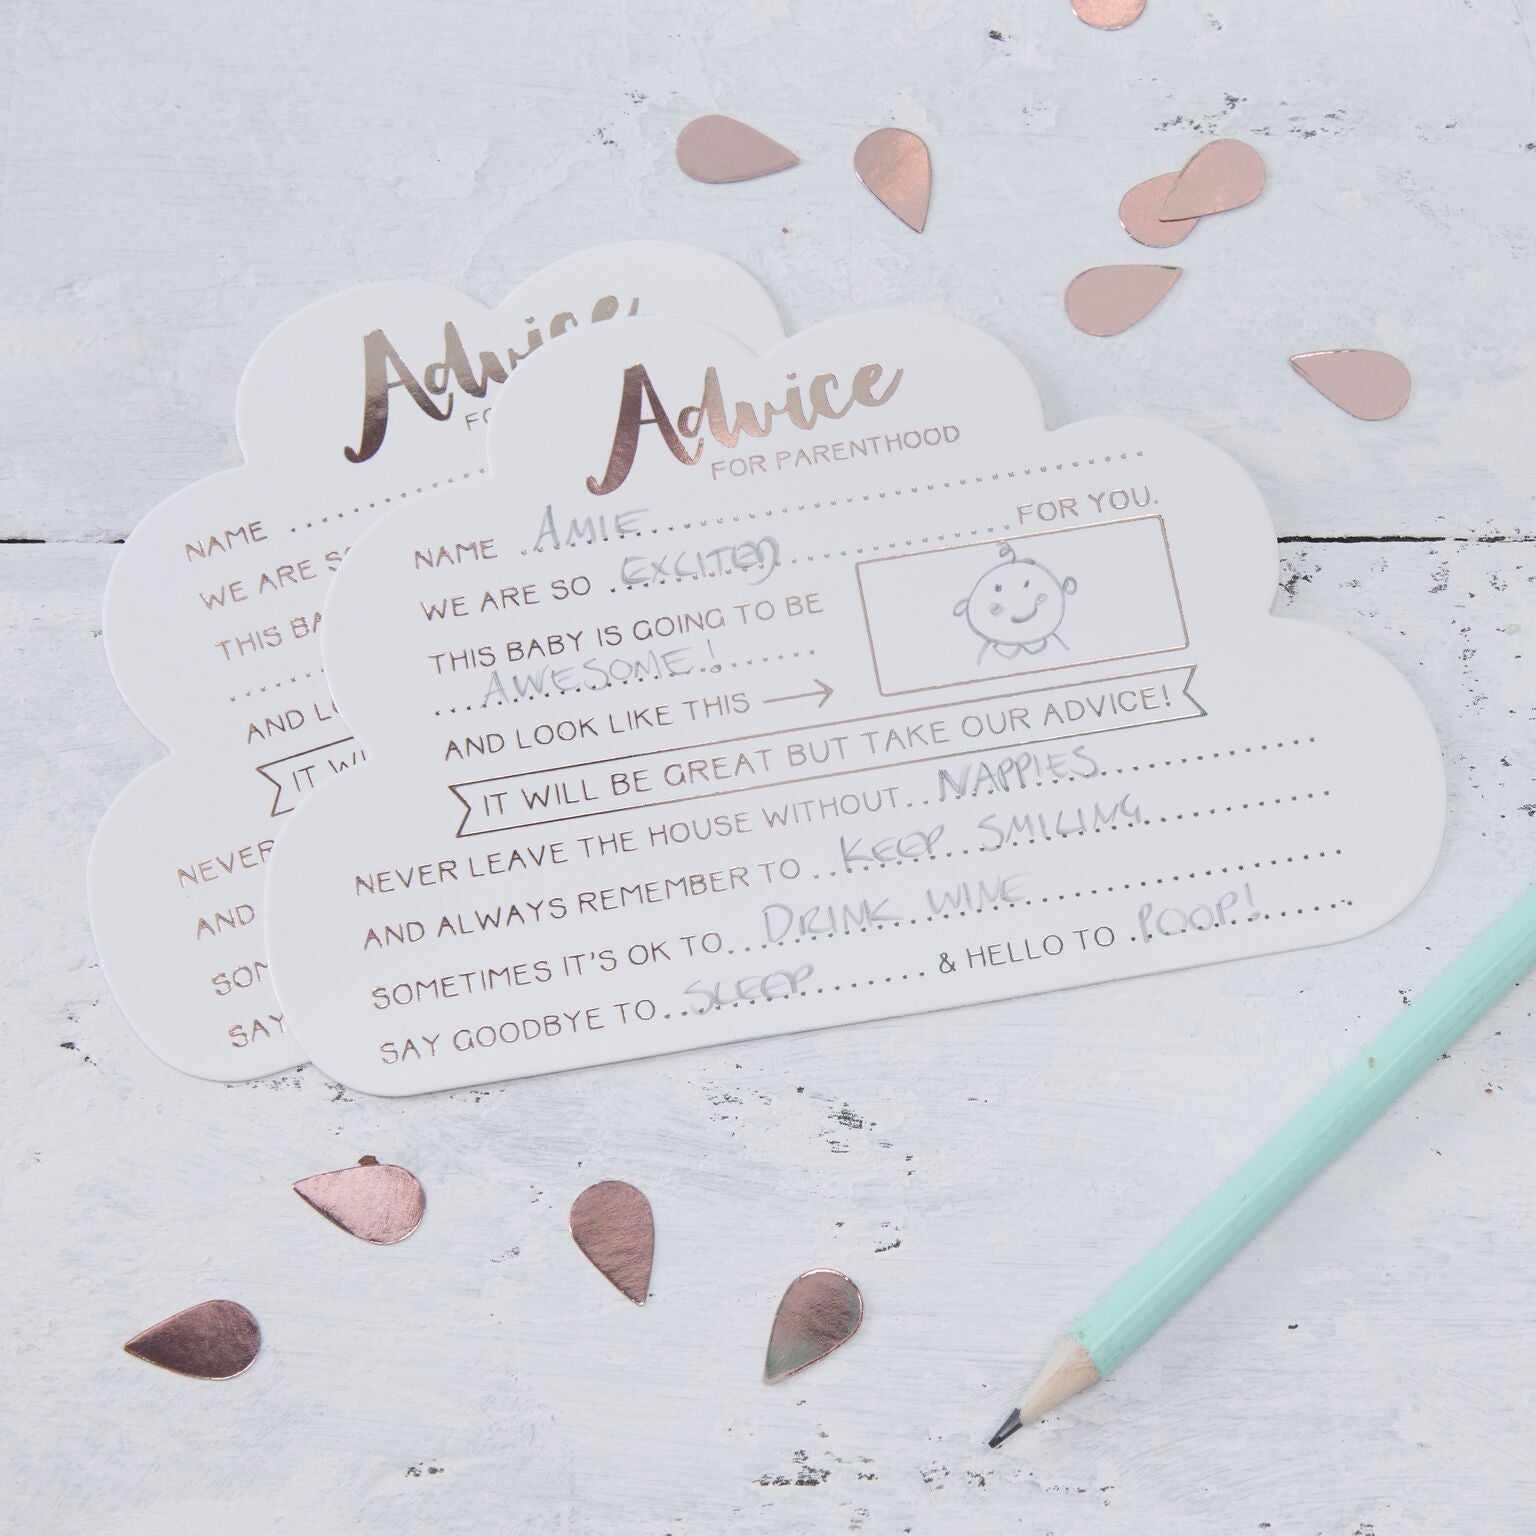 Advice
FOR PARENTHOOD
NAME AMIE
WE ARE SO EXCITED FOR YOU.
THIS BABY IS GOING TO BE
AWESOME!
AND LOOK LIKE THIS →
IT WILL BE GREAT BUT TAKE OUR ADVICE!
NEVER LEAVE THE HOUSE WITHOUT NAPPIES
AND ALWAYS REMEMBER TO KEEP SMILING
SOMETIMES IT'S OK TO DRINK WINE
SAY GOODBYE TO SLEEP & HELLO TO POOP!
Advice
NAME
WE ARE
THIS
AND
IT
NEVER
AND
SAY